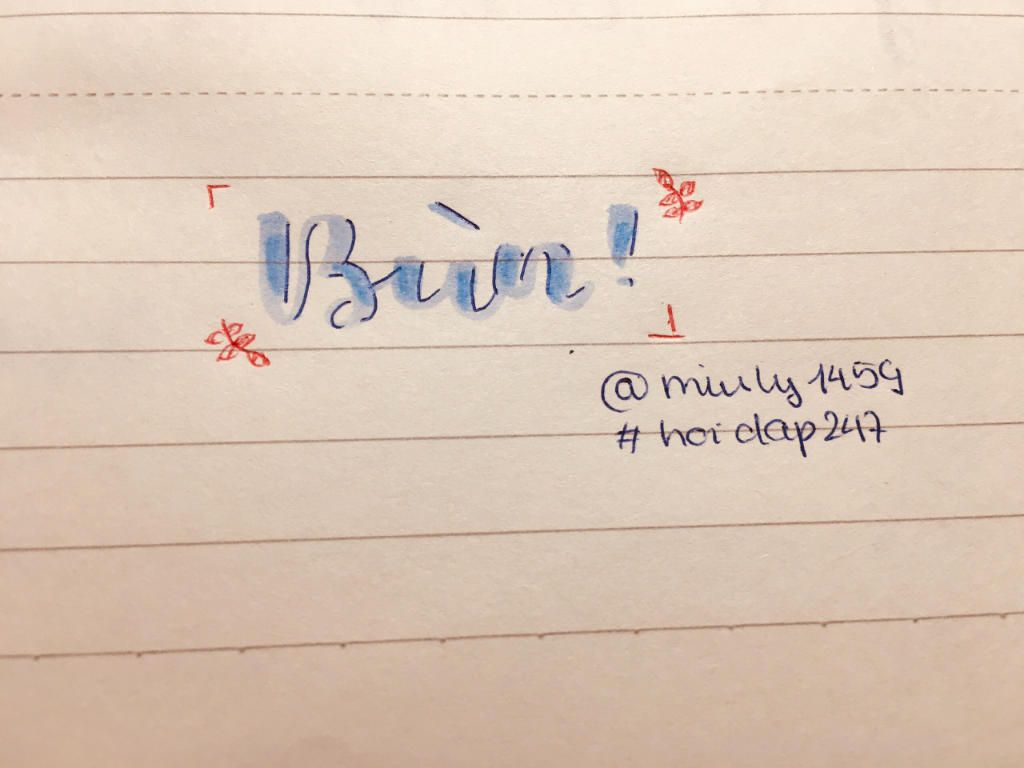 Bùn!
@miuly1459
#hoidap247